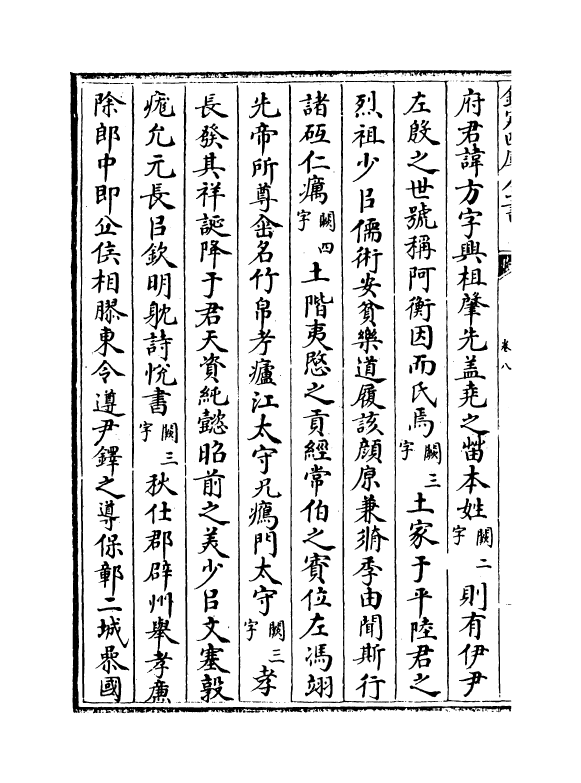 欽定四庫全書
卷八
府君諱方字興祖肇先蓋堯之苗本姓闕二字則有伊尹
左殷之世號稱阿衡因而氏焉闕三字土家于平陸君之
烈祖少㠯儒術安貧樂道履該顔原兼脩季由聞斯行
諸砥仁癘闕四字土階夷愍之貢經常伯之賓位左馮翊
先帝所尊垂名竹帛考廬江太守兄鴈門太守闕三字孝
長發其祥誕降于君天資純懿昭前之美少㠯文塞敦
庬允元長㠯欽明躭詩悅書闕三字秋仕郡辟州舉孝廉
除郎中即丘侯相膠東令遵尹鐸之導保鄣二城參國